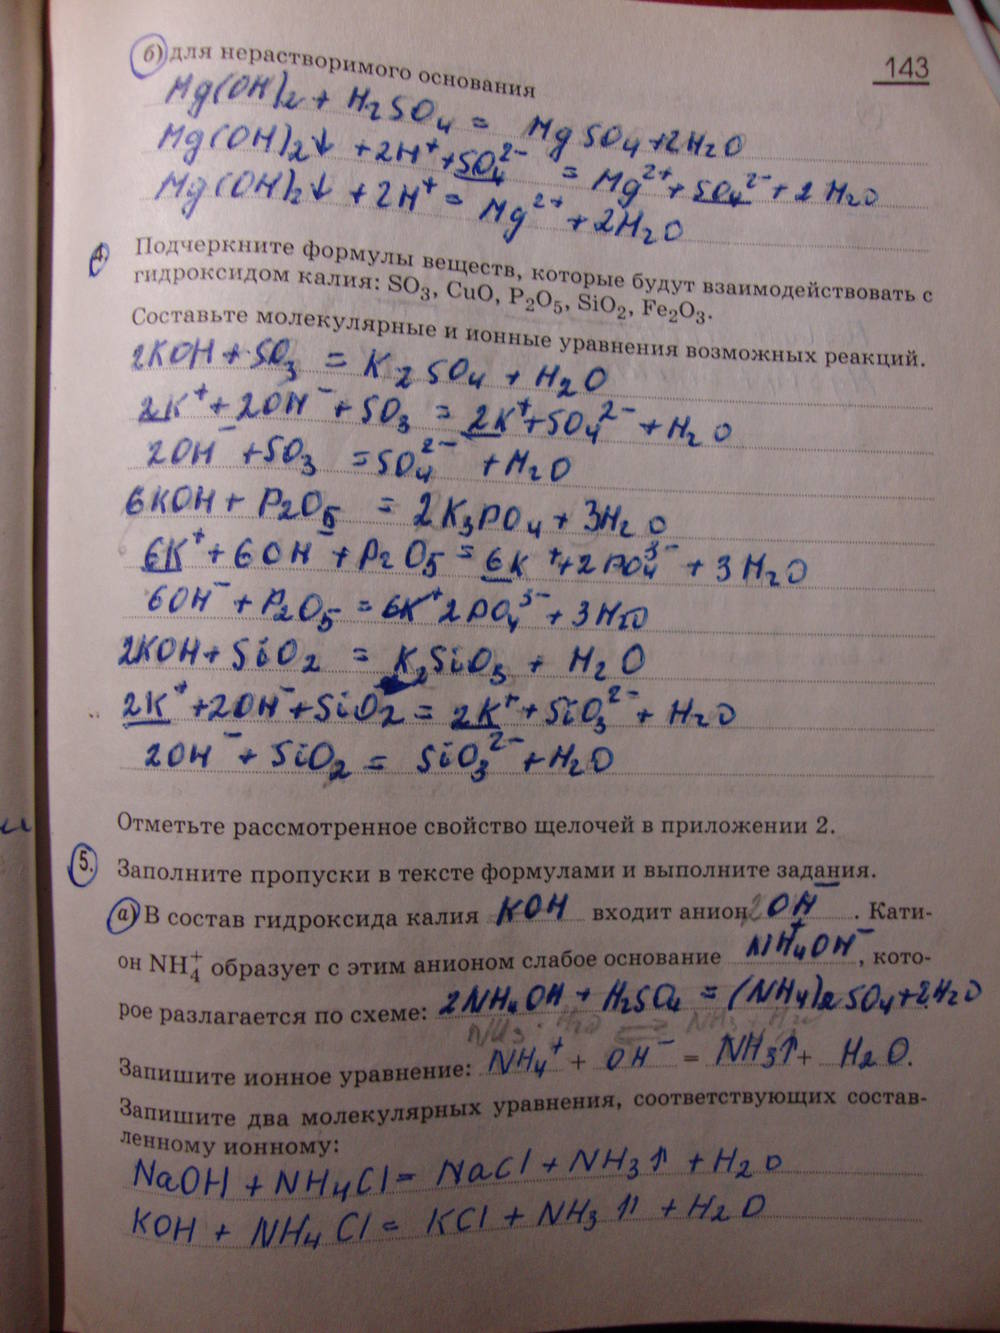 143
б) для нерастворимого основания
Mg(OH)2 + H2SO4 = MgSO4 + 2H2O
Mg(OH)2↓ + 2H⁺ + SO4²⁻ = Mg²⁺ + SO4²⁻ + 2H2O
Mg(OH)2↓ + 2H⁺ = Mg²⁺ + 2H2O
4. Подчеркните формулы веществ, которые будут взаимодействовать с
гидроксидом калия: SO₃, CuO, P₂O₅, SiO₂, Fe₂O₃.
Составьте молекулярные и ионные уравнения возможных реакций.
2KOH + SO3 = K2SO4 + H2O
2K⁺ + 2OH⁻ + SO3 = 2K⁺ + SO4²⁻ + H2O
2OH⁻ + SO3 = SO4²⁻ + H2O
6KOH + P2O5 = 2K3PO4 + 3H2O
6K⁺ + 6OH⁻ + P2O5 = 6K⁺ + 2PO4³⁻ + 3H2O
6OH⁻ + P2O5 = 6K⁺ 2PO4³⁻ + 3H2O
2KOH + SiO2 = K2SiO3 + H2O
2K⁺ + 2OH⁻ + SiO2 = 2K⁺ + SiO3²⁻ + H2O
2OH⁻ + SiO2 = SiO3²⁻ + H2O
Отметьте рассмотренное свойство щелочей в приложении 2.
5. Заполните пропуски в тексте формулами и выполните задания.
а) В состав гидроксида калия KOH входит анион 2OH⁻. Кати-
он NH₄⁺ образует с этим анионом слабое основание NH4⁺OH⁻, кото-
рое разлагается по схеме: 2NH4OH + H2SO4 = (NH4)2SO4 + 2H2O
NH3 · H2O ⇄ NH3 + H2O
Запишите ионное уравнение: NH4⁺ + OH⁻ = NH3↑ + H2O.
Запишите два молекулярных уравнения, соответствующих состав-
ленному ионному:
NaOH + NH4Cl = NaCl + NH3↑ + H2O
KOH + NH4Cl = KCl + NH3↑ + H2O